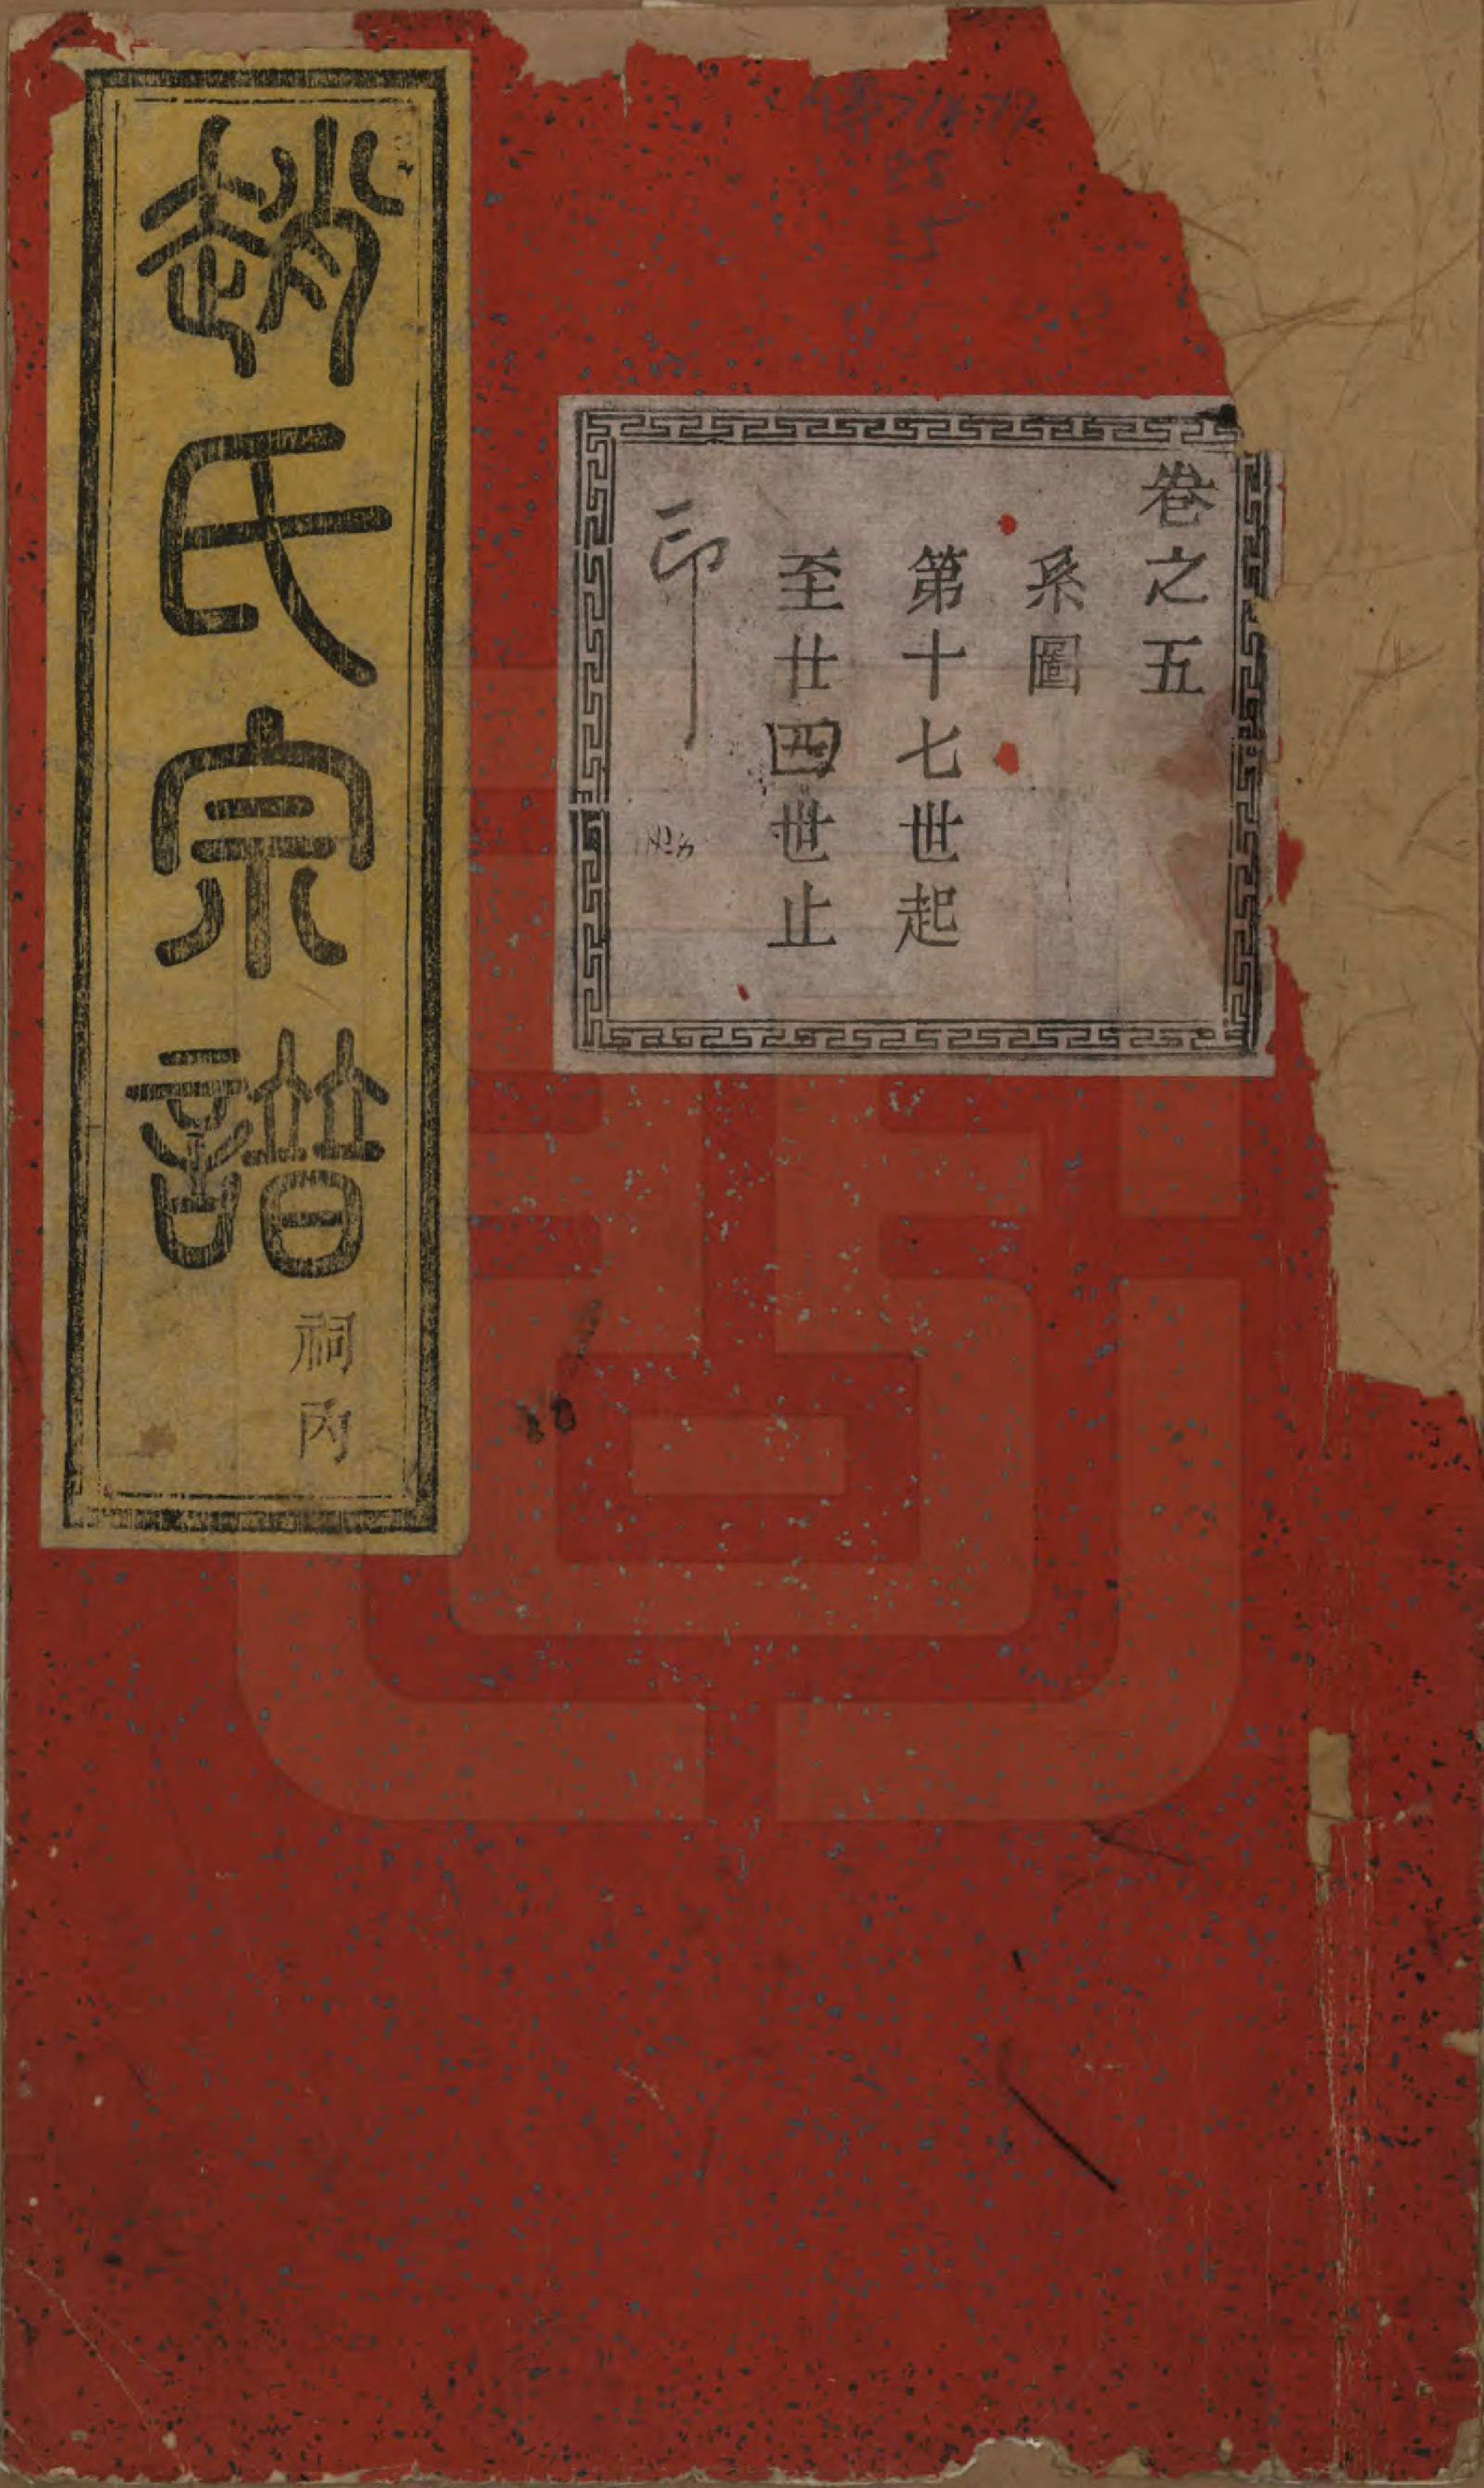 卷之五
系圖
第十七世起
至廿四世止
印
趙氏宗譜
祠内